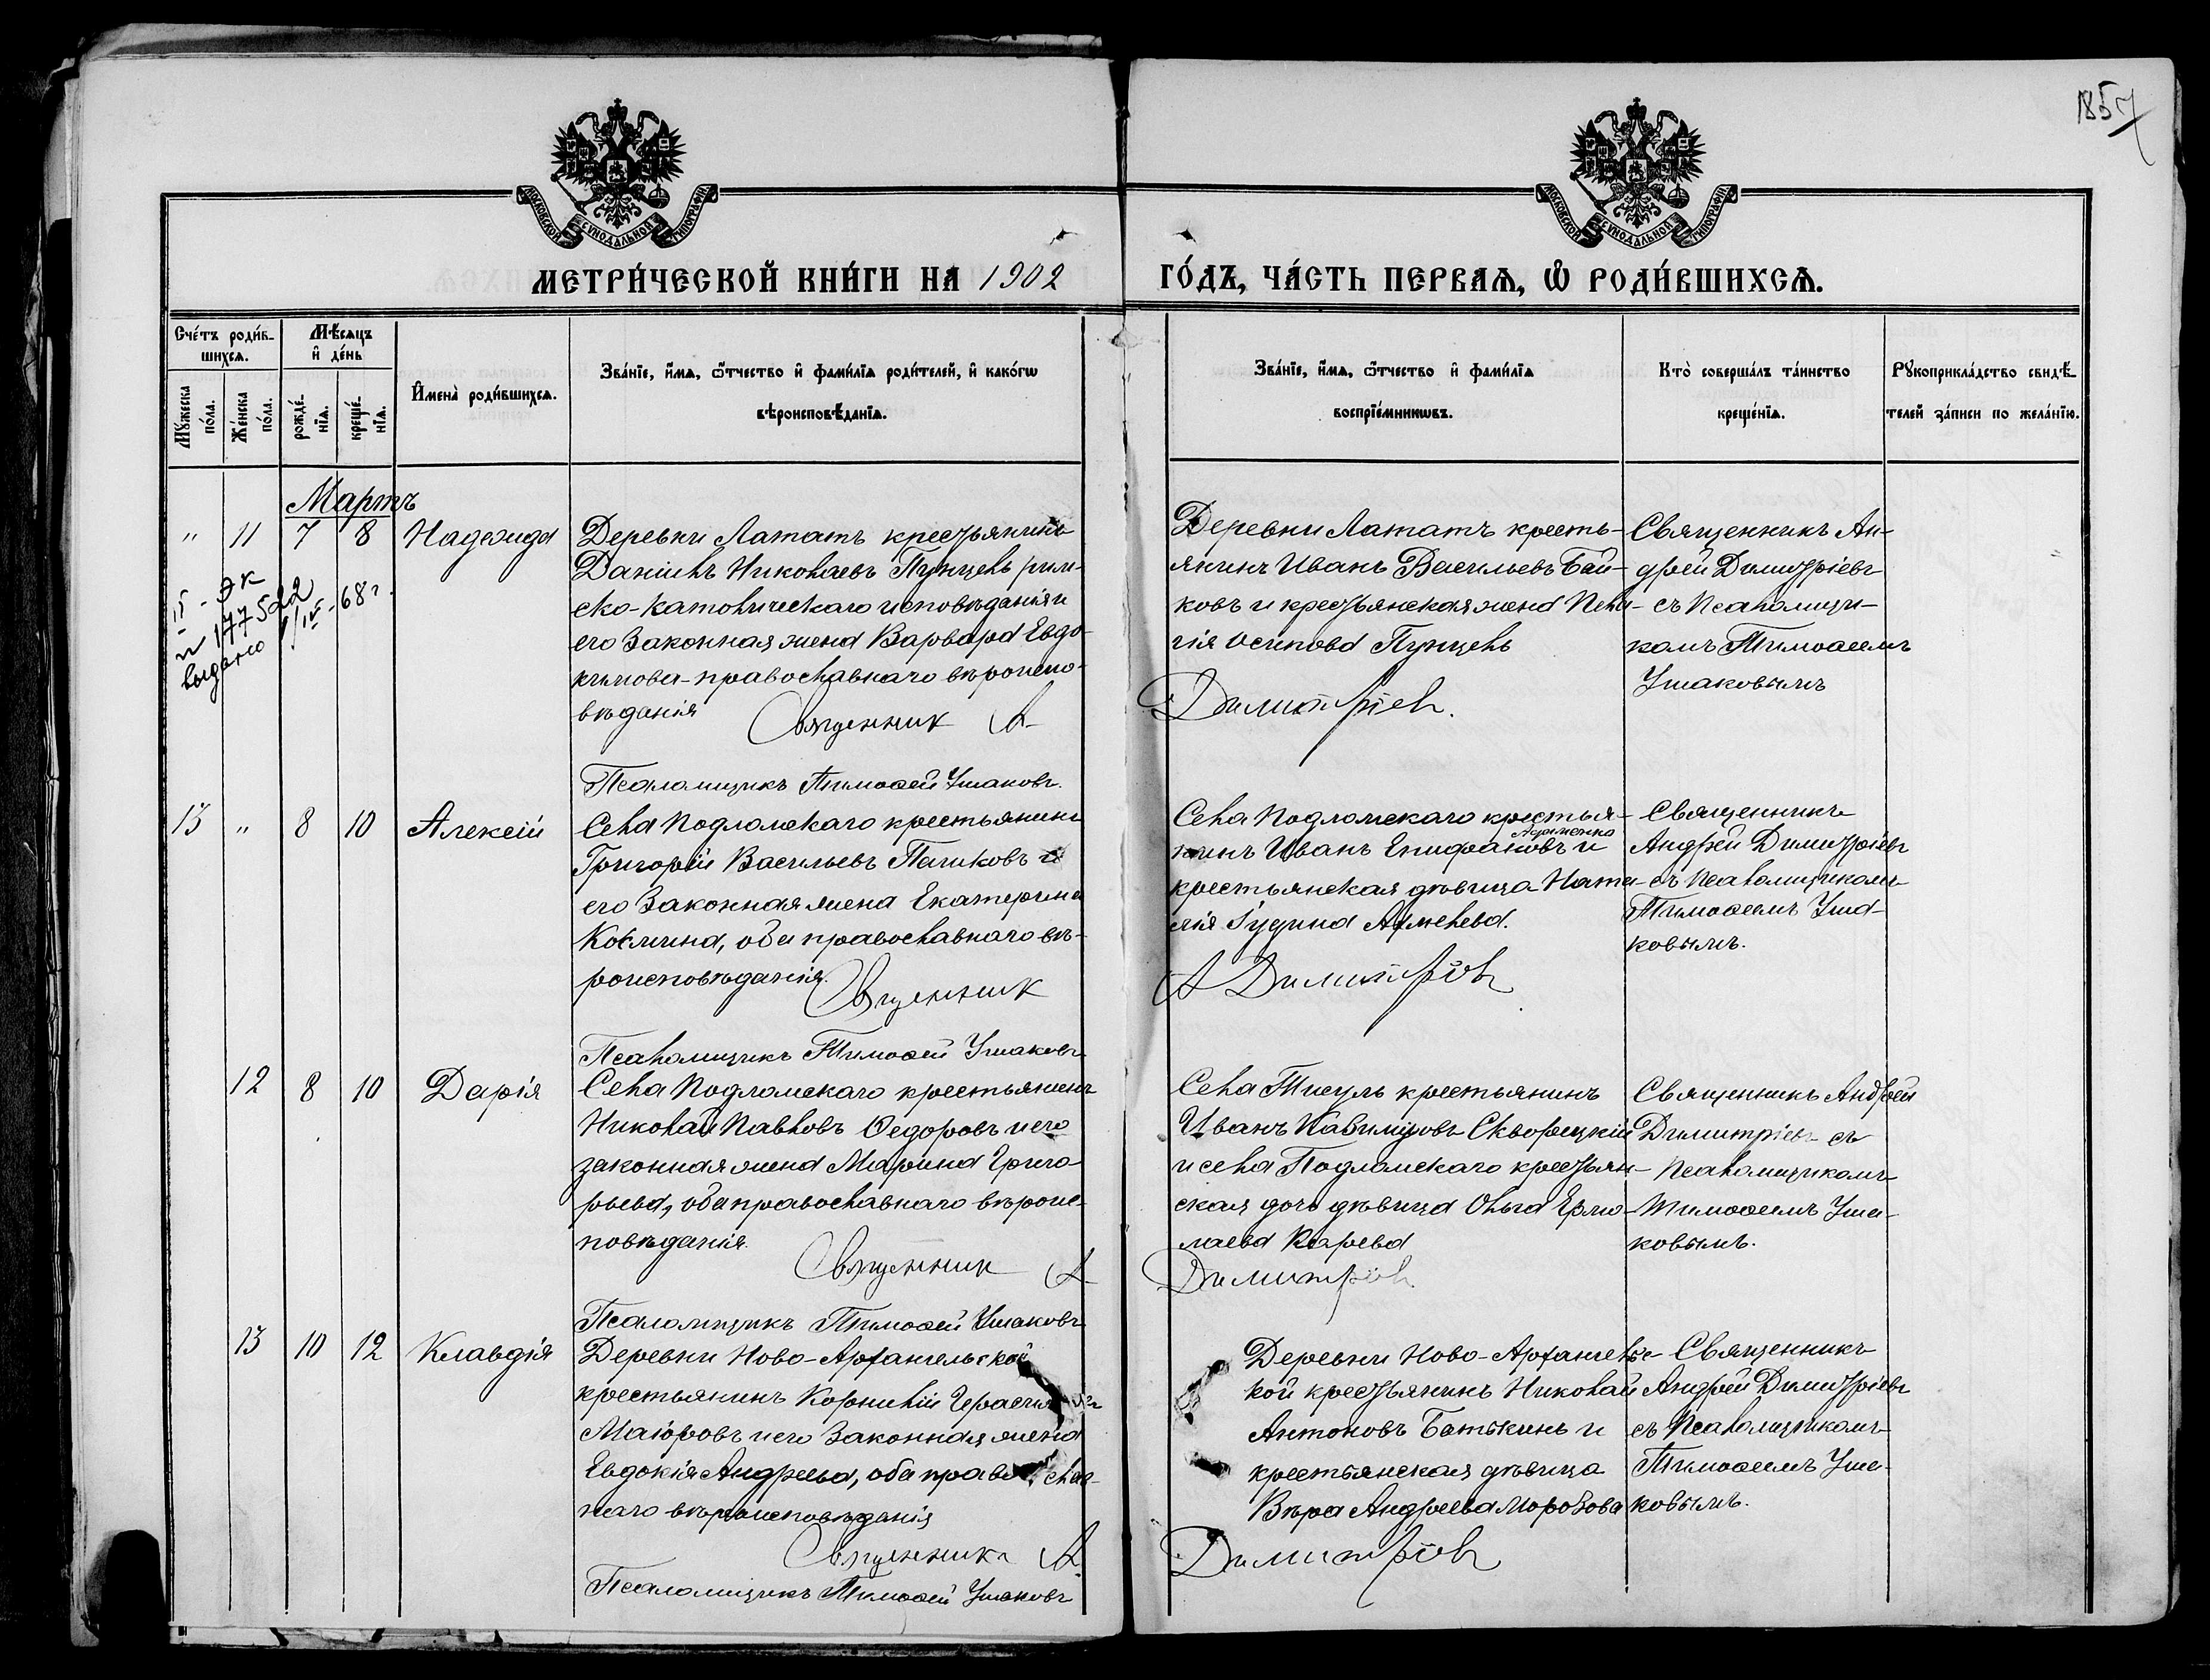 1857
МОСКОВСКОЙ СѴНОДАЛЬНОЙ ТИПОГРАФІИ
МОСКОВСКОЙ СѴНОДАЛЬНОЙ ТИПОГРАФІИ
МЕТРИ́ЧЕСКОЙ КНИ́ГИ НА 1902 ГО́ДЪ, ЧА́СТЬ ПЕРВАѦ, Ѡ РОДИ́ВШИХСѦ.
Сче́тъ роди́в-
шихсѧ.
Мѣсяцъ
и де́нь
Мꙋ́жеска
по́ла.
Же́нска
по́ла.
рожде́-
нїѧ.
креще́-
нїѧ.
Имена̀ роди́вшихсѧ.
Зва́нїе, и́мѧ, ѻ́тчество и фами́лїѧ роди́телей, и како́гѡ
вѣроисповѣ́данїѧ.
Зва́нїе, и́мѧ, ѻ́тчество и фами́лїѧ
воспрїе́мникѡвъ.
Кто̀ соверша́лъ та́инство
креще́нїѧ.
Рꙋкоприкла́дство свидѣ́-
телей за́писи по жела́нїю.
Мартъ
" 11 7 8 Надежда
№ 177522
выдано
68 г.
Деревни Лататъ крестьянинъ
Даніилъ Николаевъ Пунцель рим-
ско-католическаго исповѣданія и
его законная жена Варвара Евдо-
кимова - православнаго вѣроиспо-
вѣданія
Священник А
Псаломщикъ Тимоѳей Ушаковъ.
Деревни Лататъ кресть-
янинъ Иванъ Васильевъ Бай-
ковъ и крестьянская жена Пела-
гія Осипова Пунцель
Димитріев.
Священникъ Ан-
дрей Димитріевъ
съ псаломщи-
комъ Тимоѳеемъ
Ушаковымъ
13 " 8 10 Алексій
Села Подломскаго крестьянинъ
Григорій Васильевъ Пашковъ и
его законная жена Екатерина
Козмина, оба православнаго вѣ-
роисповѣданія.
Священник
Псаломщикъ Тимоѳей Ушаковъ
Села Подломскаго крестья-
нинъ Иванъ Епифановъ и
крестьянская дѣвица Ната-
лія Іудина
А Димитріев
Священникъ
Андрей Димитріевъ
съ псаломщикомъ
Тимоѳеемъ Уша-
ковымъ.
12 8 10 Дарія
Села Подломскаго крестьянинъ
Николай Павловъ Ѳедоровъ и его
законная жена Марина Григо-
рьева, оба православнаго вѣроис-
повѣданія.
Священник А
Псаломщикъ Тимоѳей Ушаковъ
Села Тисуль крестьянинъ
Иванъ Скворецкій
и села Подломскаго крестьян-
ская дочь дѣвица Ольга Ермо-
лаева Карева
Димитріев
Священникъ Андрей
Димитріевъ съ
псаломщикомъ
Тимоѳеемъ Уша-
ковымъ.
13 10 12 Клавдія
Деревни Ново-Архангельской
крестьянинъ Корнилій
Маіоровъ и его законная жена
Евдокія Андреева, оба православ-
наго вѣроисповѣданія
Священникъ А
Псаломщикъ Тимоѳей Ушаковъ
Деревни Ново-Архангельс-
кой крестьянинъ Николай
Антоновъ Батькинъ и
крестьянская дѣвица
Вѣра Андреева Морозова
Димитріев
Священникъ
Андрей Димитріевъ
съ псаломщикомъ
Тимоѳеемъ Уша-
ковымъ.